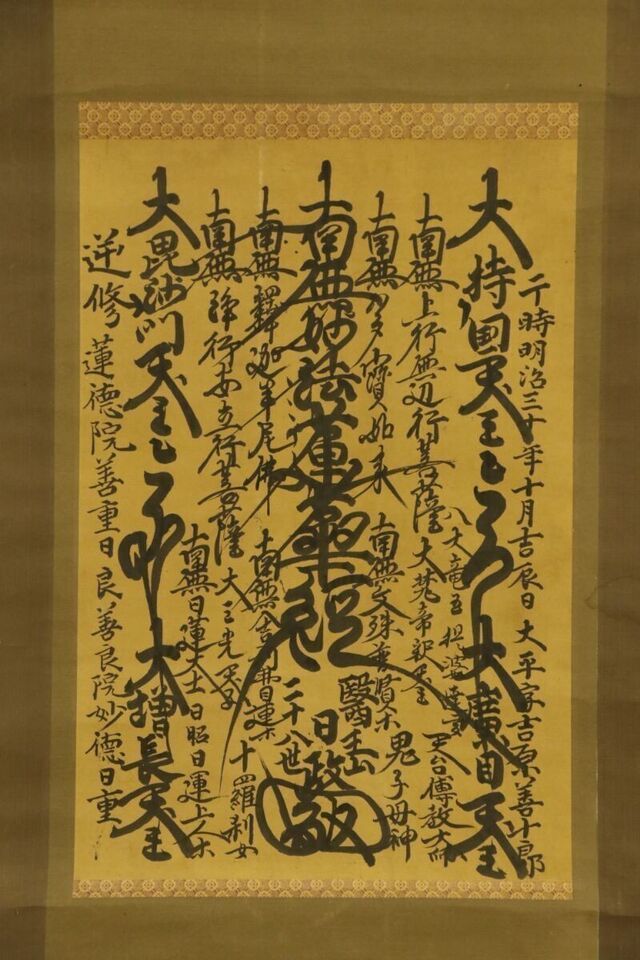 于時明治三十年十月吉辰日 大平家吉原善十郎
大持国天王 大廣目天王
南無上行無辺行菩薩 大梵帝釈天王 天台傳教大師
八大竜王
南無多寶如来 南無文殊普賢等 鬼子母神
南無妙法蓮華経
二十八世 日政
南無釋迦牟尼佛 南無舎利弗目連等 十羅刹女
南無浄行安立行菩薩 大三光天子
南無日蓮大士 日昭日運上人等
大毘沙門天王 大増長天王
逆修 蓮德院善重日良 善良院妙德日重